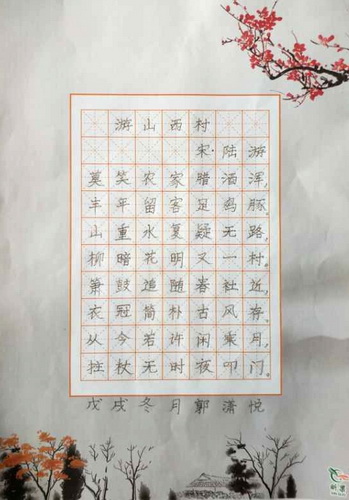 游山西村
宋·陆游
莫笑农家腊酒浑,
丰年留客足鸡豚。
山重水复疑无路,
柳暗花明又一村。
箫鼓追随春社近,
衣冠简朴古风存。
从今若许闲乘月,
拄杖无时夜叩门。
戊戌冬月郭潇悦